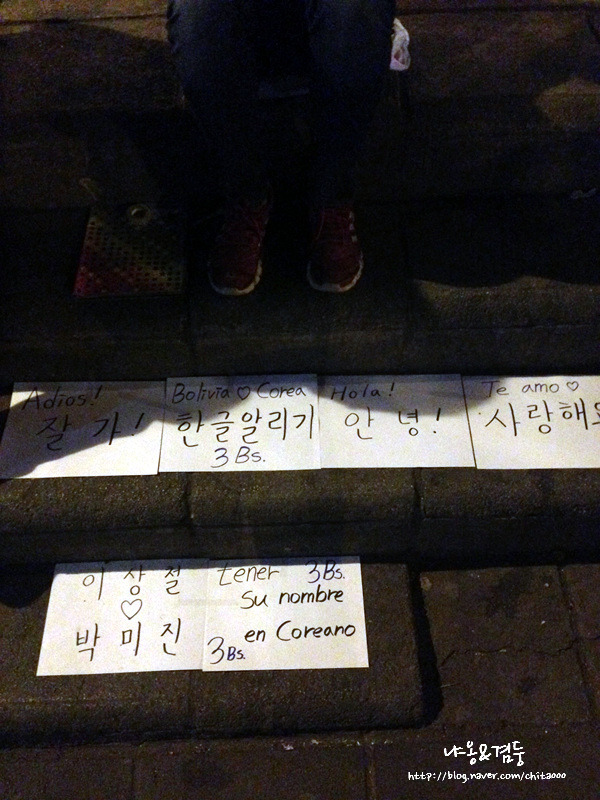 Adios!
잘 가!
Bolivia ♡ Corea
한글알리기
3 Bs.
Hola!
안녕!
Te amo ♡
사랑해요
이상절
♡
박미진
tener 3Bs.
su nombre
en Coreano
3Bs.
냐옹&겸둥
http://blog.naver.com/chitaooo